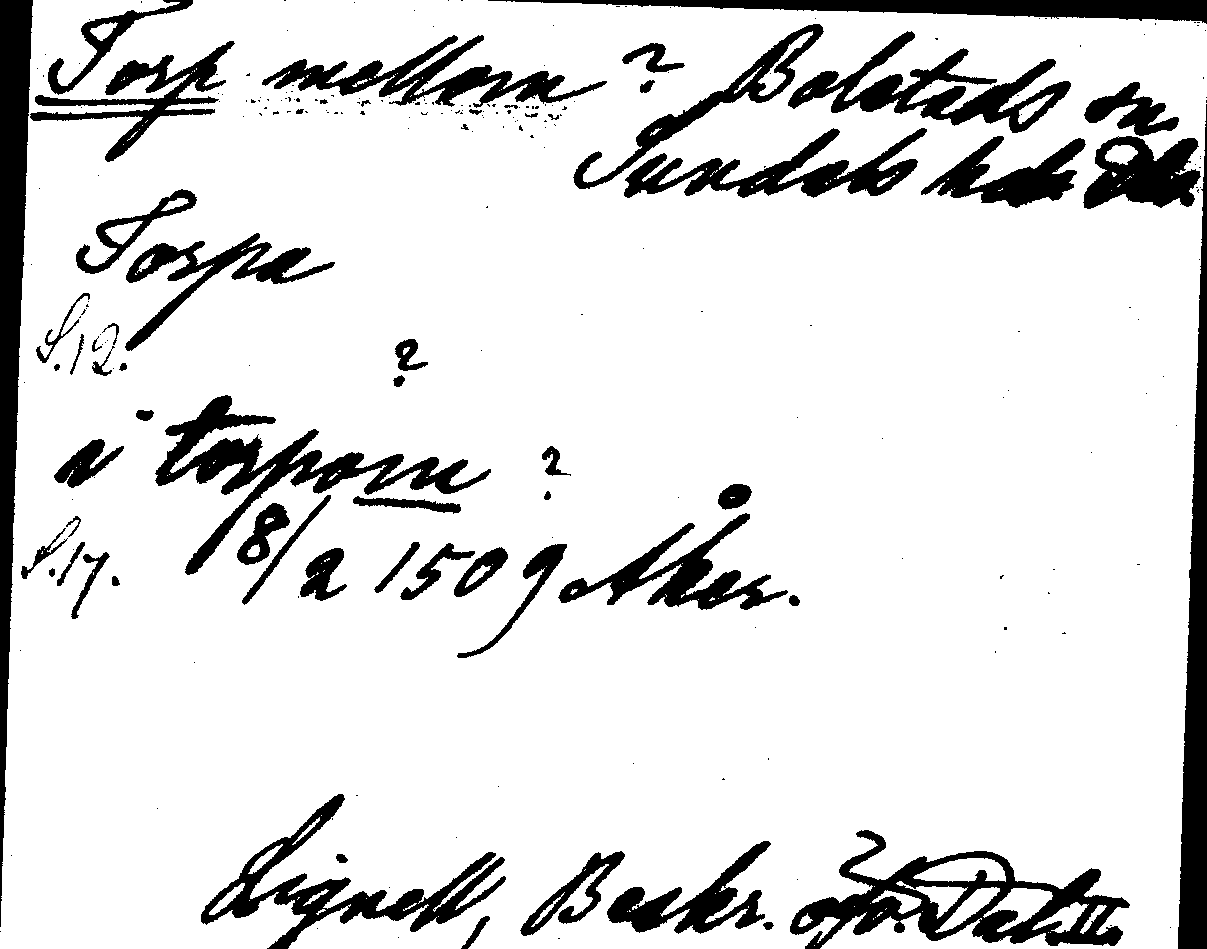 Torp mellom ? Bolstads sn.
Sundals hd. Dls.
Torpa
S.12.
?
i torpom ?
S.17. 8/2 1509 Åker.
Lignell, Beskr. öfv. Dal. II.